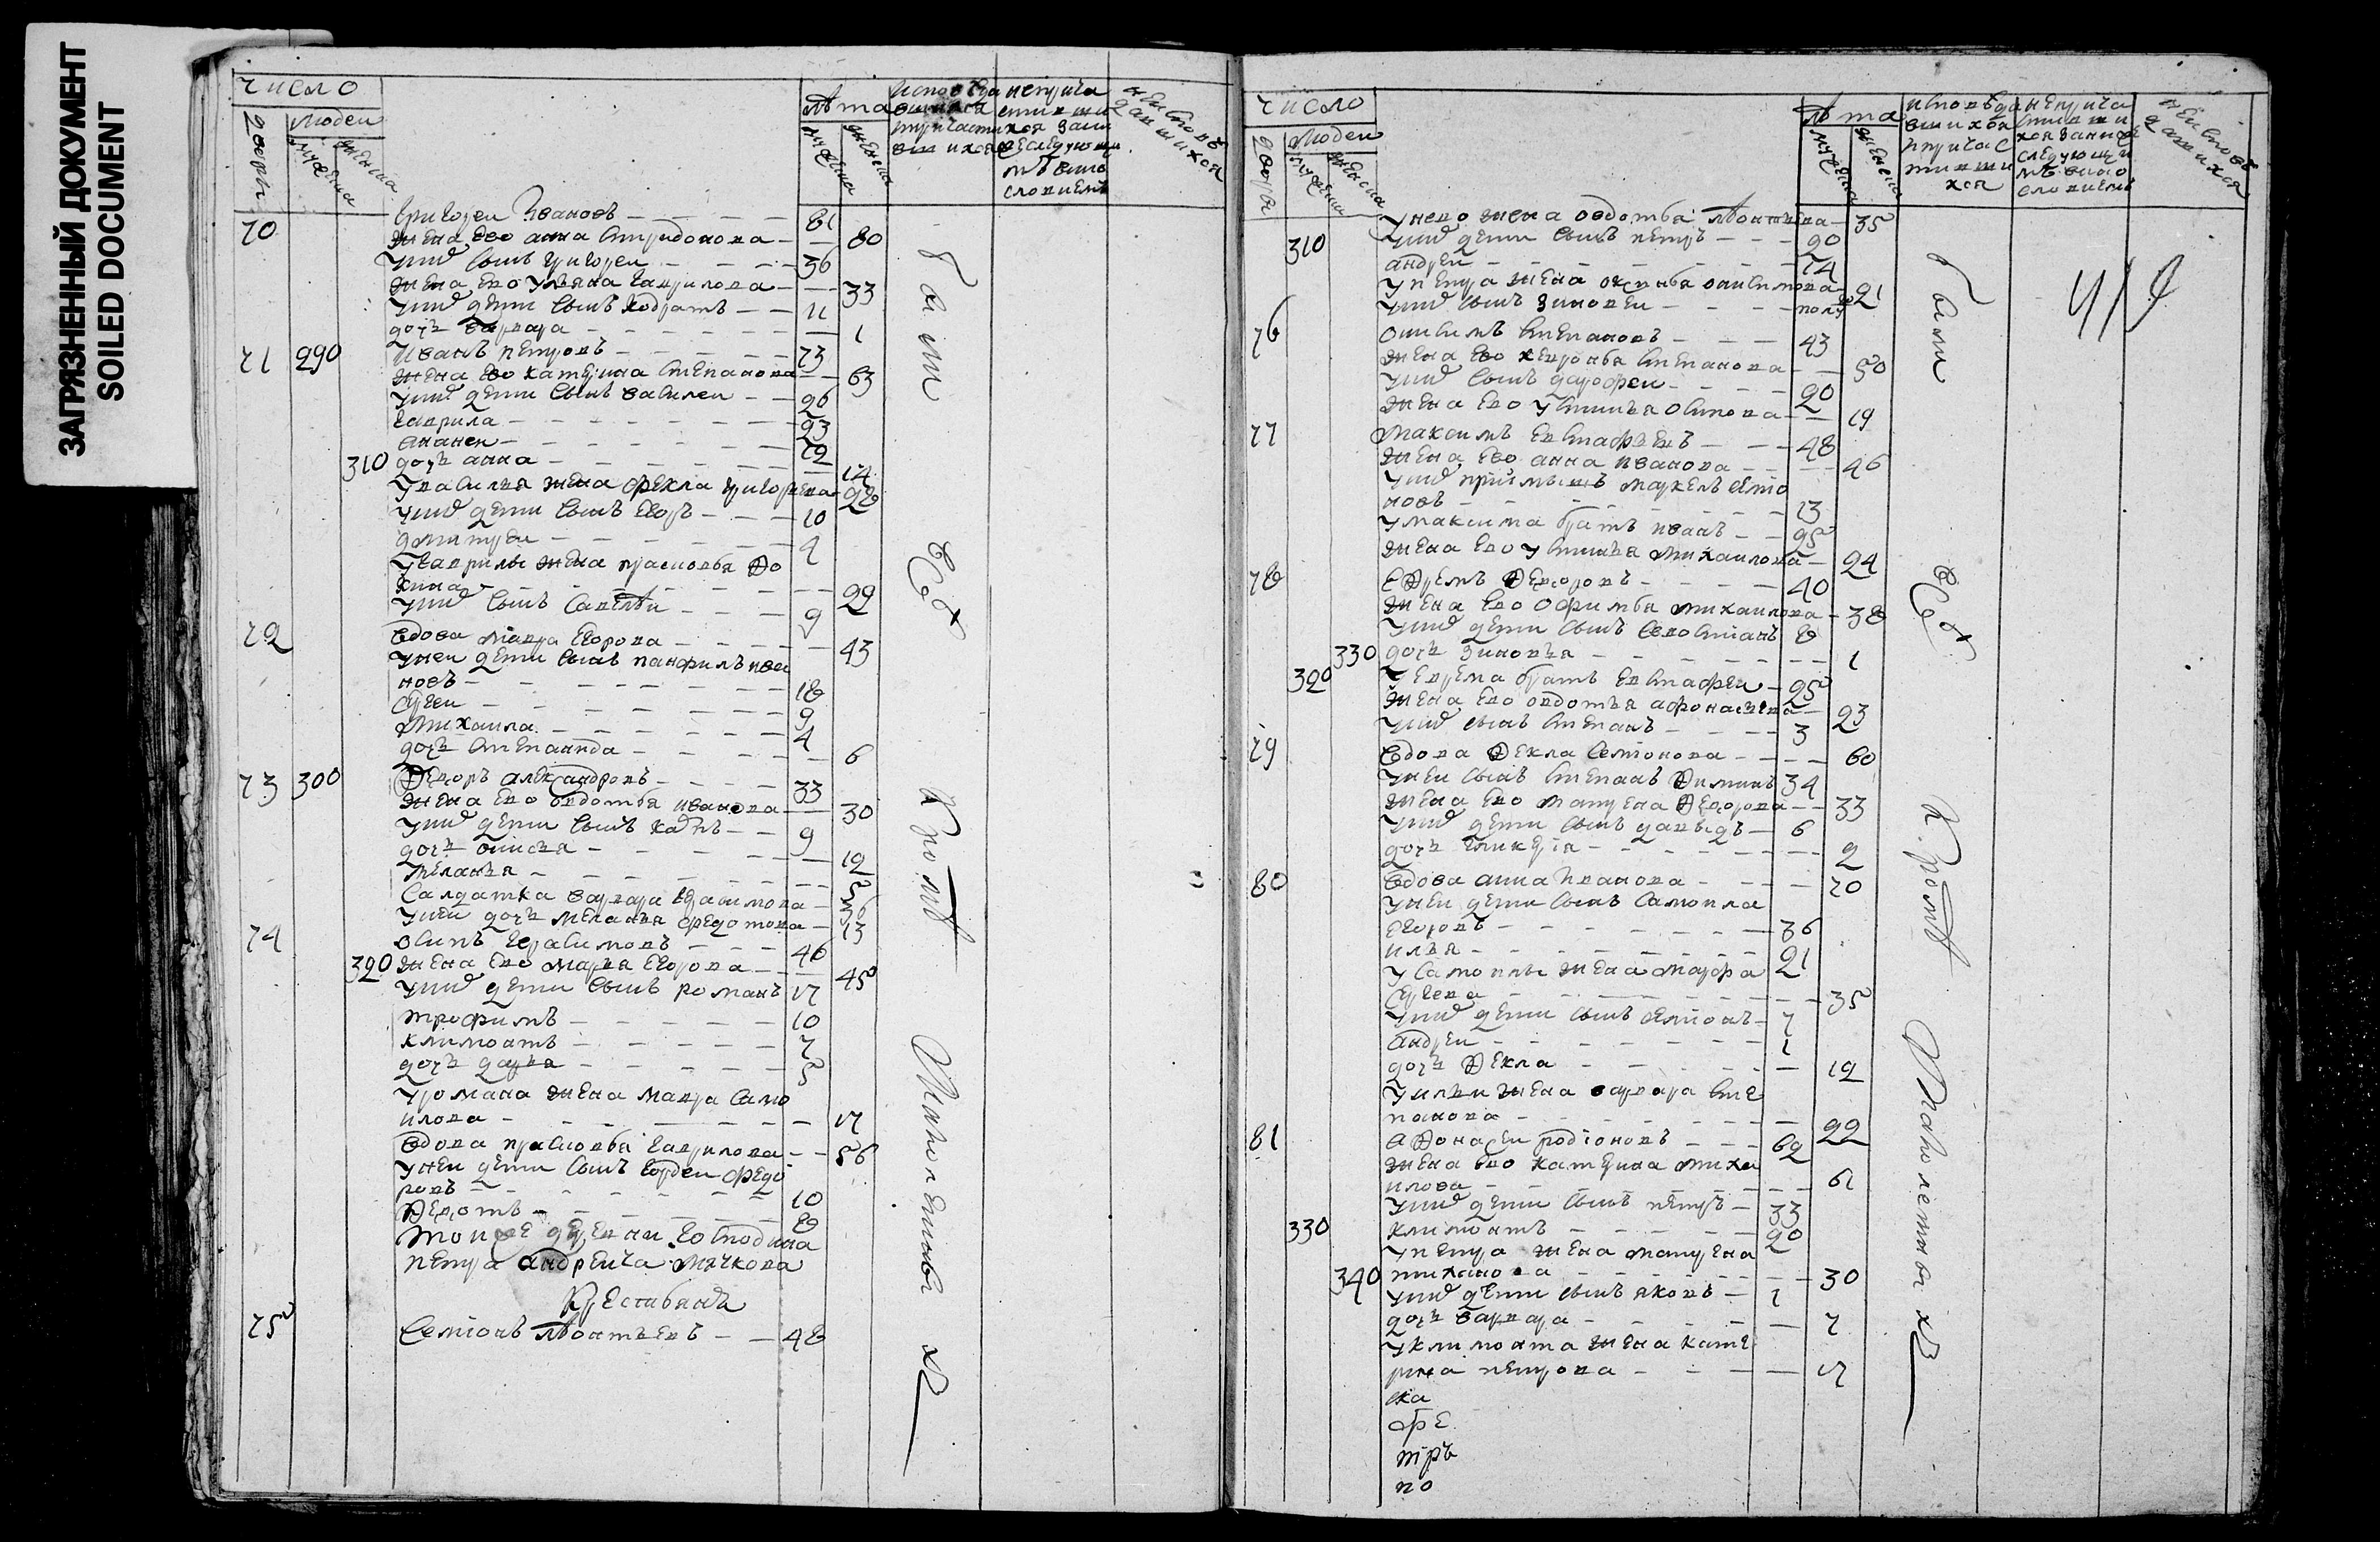 ЗАГРЯЗНЕННЫЙ ДОКУМЕНТ
SOILED DOCUMENT
число
дворы
людеи
мужеска
женска
лѣта
мужеска
женска
70 Григореи Ивановъ 81
жена ево анна спиридонова 80
у них сынъ григореи 36
жена ево ульяна гаврилова 33
у них дети сынъ кодратъ 11
дочь варвара 1
71 290 Иванъ петровъ 73
жена ево катерина степанова 63
у них дети сынъ василеи 26
гаврила 23
ананеи 12
310 дочь анна 14
у василья жена фекла григорьева 28
у них дети сынъ егоръ 10
дмитреи 4
у гаврилы жена прасковья фо
кина 22
у них сынъ савелѣи 9
72 вдова мавра егорова 43
у неи дети сынъ панфилъ ива
новъ 18
сргеи 9
михаила 4
дочь степанида 6
73 300 Федоръ александровъ 33
жена ево овдотья иванова 30
у них дети сынъ 9
дочь анисья 12
меланья 5
салдатка варвара герасимова 36
у неи дочь меланья федотова 13
74 осипъ герасимовъ 46
320 жена ево марья егорова 45
у них дети сынъ романъ 17
трофимъ 10
климонтъ 7
дочь дарья 5
у романа жена мавра само
илова 17
вдова прасковья гаврилова 56
у неи дети сынъ гордеи федо
ровъ 10
Федотъ 8
тои же деревни господина
петра андреича мячкова
крестьянѣ
75 Семионъ лѣонтьевъ 48
бати
все
кромѣ
малолетныхъ
число
дворы
людеи
мужеска
женска
лѣта
мужеска
женска
у нево жена овдотья лѣонтьева 35
310 у них дети сынъ петръ 20
андреи 14
у петра жена оксинья онисимова 21
у них сынъ зиновеи полу
76 онисимъ степановъ 43
жена ево хевронья степанова 50
у них сынъ дорофеи 20
жена ево устинья осипова 19
77 максимъ евстафьевъ 48
жена ево анна иванова 46
у них приимышъ маркелъ семио
новъ 13
у максима братъ иванъ 25
жена ево устинья михаилова 24
78 ефремъ федоровъ 40
жена ево офимья михаилова 38
у них дети сынъ севостианъ 8
330 дочь зиновья 1
320 у ефрема братъ евстафеи 25
жена ево овдотья афонасьева 23
у них сынъ степанъ 3
79 вдова фекла семионова 60
у неи сынъ степанъ 34
жена ево матрена федорова 33
у них дети сынъ давыдъ 6
дочь гликерiя 2
80 вдова анна иванова 70
у неи дети сынъ самоила
егоровъ 36
илья 21
у самоилы жена марфа
сергева 35
у них дети сынъ семионъ 7
андреи 1
дочь фекла 12
у ильи жена варвара сте
панова 22
81 афонасеи родiоновъ 62
жена ево катерина миха
илова 61
у них дети сынъ петръ 33
330 климонтъ 20
у петра жена матрена
340 тиханова 30
у них дети сынъ яковъ 1
дочь варвара 7
у климонта жена кате
рина петрова 17
ска
фе
тръ
по
бати
все
кромѣ
малолетныхъ